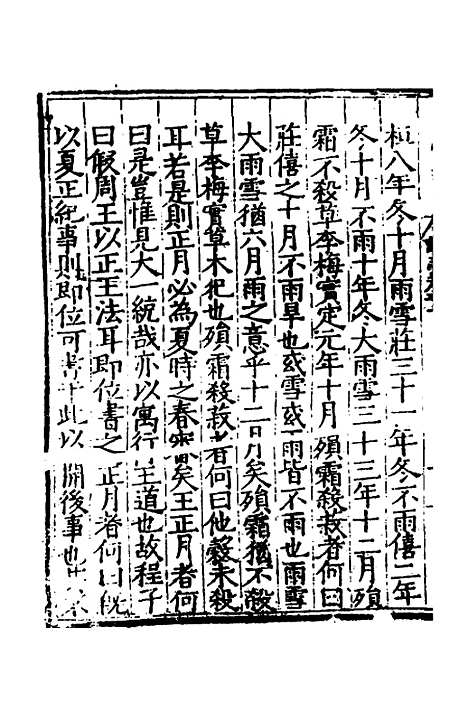 桓八年冬十月雨雪莊三十一年冬不雨僖二年
冬十月不雨十年冬大雨雪三十三年十二月殞
霜不殺草李梅實定元年十月殞霜殺菽者何曰
莊僖之十月不雨旱也或雪或雨皆不雨也雨雪
大雨雪猶六月雨之意乎十二月矣殞霜猶不殺
草李梅實草木妃也殞霜殺菽者何曰他穀未殺
耳若是則正月必為夏時之春審矣王正月者何
曰是豈惟見大一統哉亦以寓行王道也故程子
曰假周王以正王法耳即位書之正月者何曰既
以夏正紀事則即位可書于此以開後事也